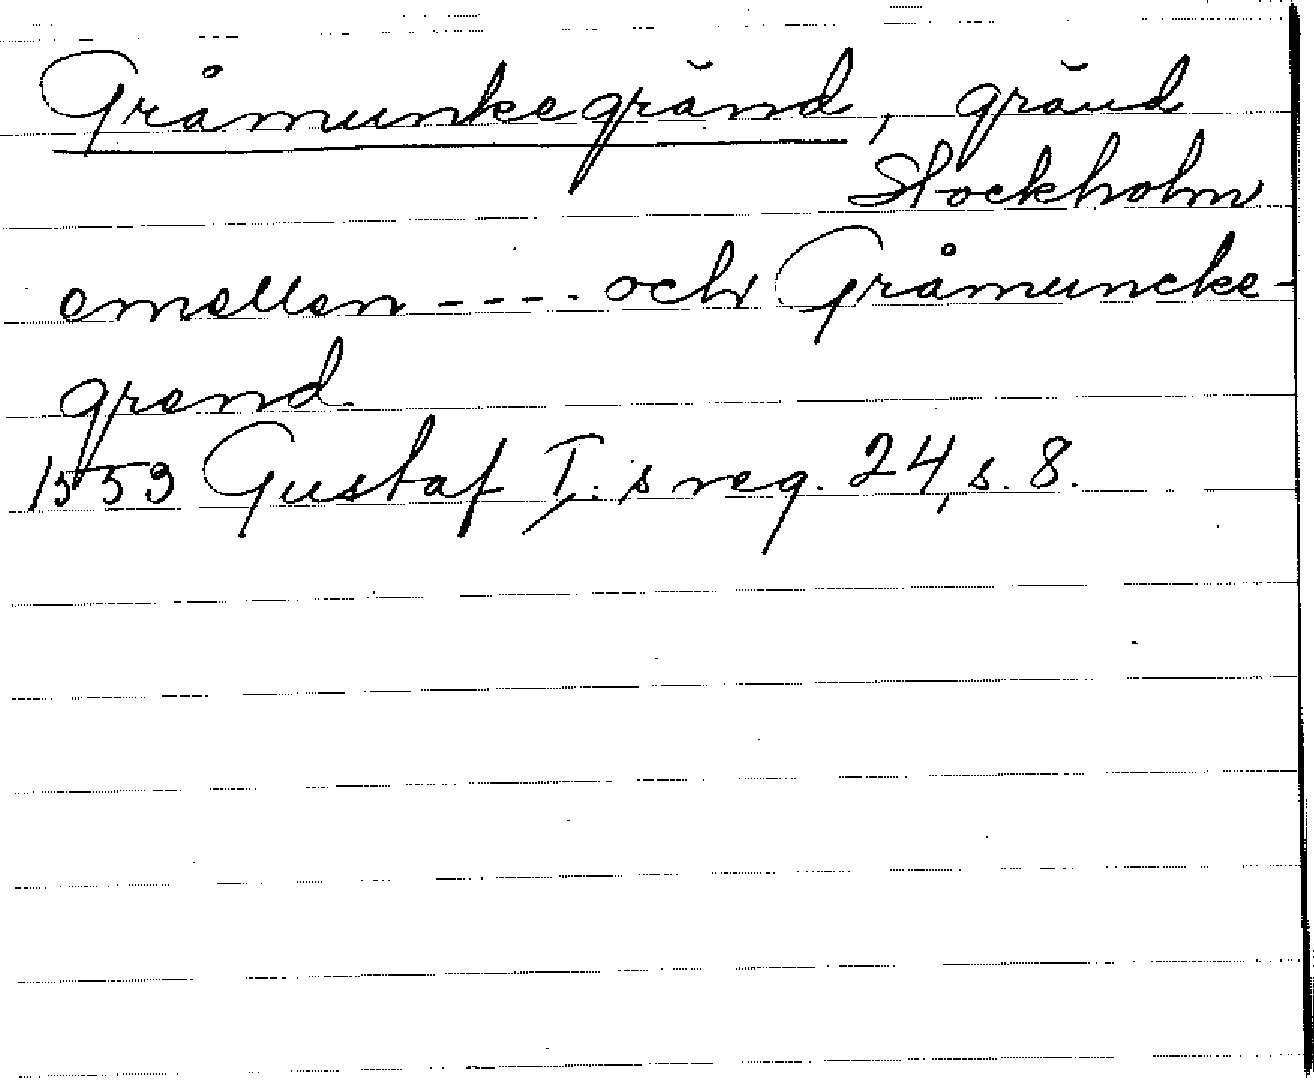 Gråmunkegränd, gränd
Stockholm
emellen ---- och Gråmuncke-
grend
1553 Gustaf I:s reg. 24, s. 8.